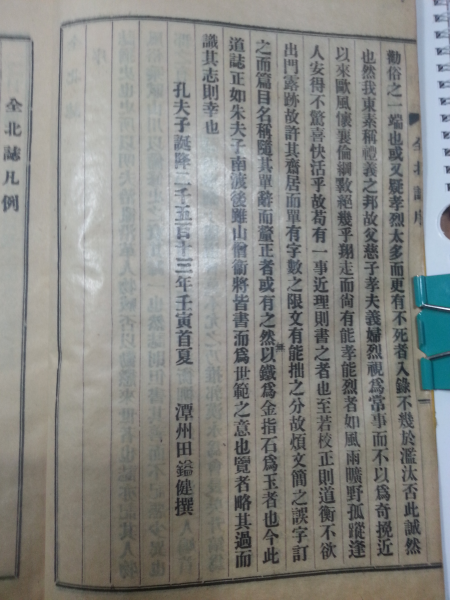 全北誌序
勸俗之一端也或又疑孝烈太多而更有不死者入錄不幾於濫汰否此誠然
也然我東素稱禮義之邦故父慈子孝夫義婦烈視爲常事而不以爲奇挽近
以來歐風儴襄倫綱斁絕幾乎翔走而尙有能孝能烈者如風雨曠野孤蹤逢
人安得不驚喜快活乎故苟有一事近理則書之者也至若校正則道衡不欲
出門露跡故許其齋居而單有字數之限文有能拙之分故煩文簡之誤字訂
之而篇目名稱隨其單辭而釐正者或有之然以鐵爲金指石爲玉者也今此
道誌正如朱夫子南渡後雖山僧衙將皆書而爲世範之意也覽者略其過而
識其志則幸也
孔夫子誕降二千五百十三年壬寅首夏
潭州田鎰健撰
全北誌凡例